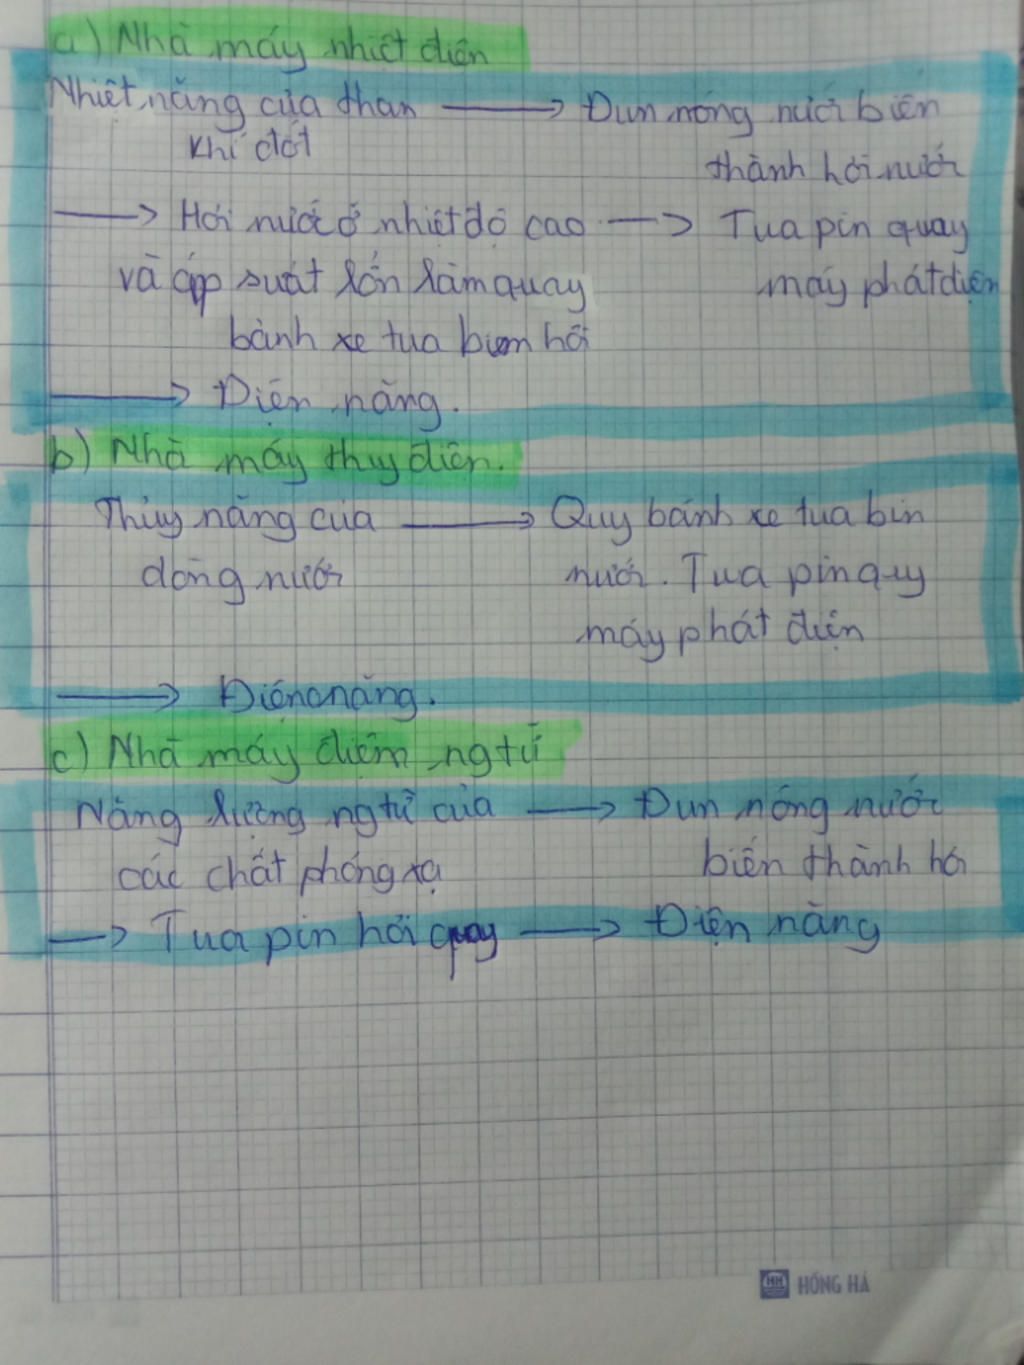 a) Nhà máy nhiệt điện
Nhiệt năng của than → Đun nóng nước biến
khí đốt
thành hơi nước
→ Hơi nước ở nhiệt độ cao → Tua pin quay
và áp suất lớn làm quay máy phát điện
bánh xe tua bin hơi
→ Điện năng.
b) Nhà máy thuy điện.
Thủy năng của → Quy bánh xe tua bin
dòng nước nước. Tua pin quy
máy phát điện
→ Điện năng.
c) Nhà máy điện ngtử
Năng lượng ngtử của → Đun nóng nước
các chất phóng xạ biến thành hơi
→ Tua pin hơi quay → Điện năng
HH HỒNG HÀ